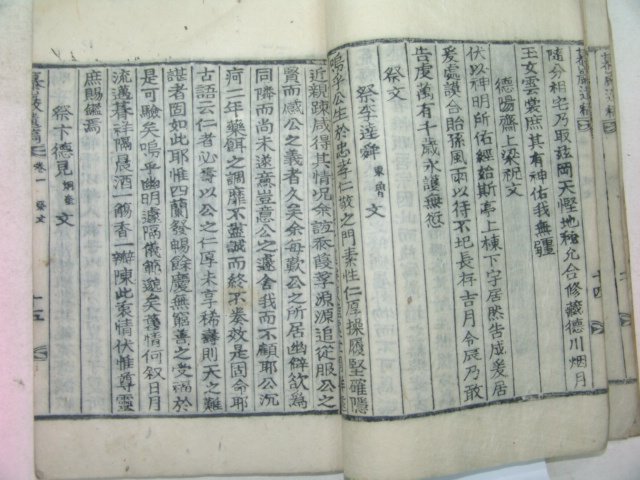 隨分相宅乃取玆岡天慳地秘允合修藏德川烟月
玉女雲裳庶其有神佑我無疆
德陽齋上樑祝文
伏以神明所佑經始斯亭上棟下宇居然告成爰居
爰處謨合詒孫風雨以待不圮長存吉月令辰乃敢
告虔萬有千歲永護無愆
祭文
祭李達舜東魯文
嗚乎公生於忠孝仁敬之門素性仁厚操履堅確隱
近親踈咸得其情况余誼忝葭莩源源追從服公之
賢而感公之義者久矣余每歎公之所居幽僻欲爲
同隣而尚未遂意豈意公之遽舍我而不顧耶公沉
疴二年藥餌之調靡不盡誠而終不奏效是固命耶
古語云仁者必壽以公之仁厚未享稀壽則天之難
諶者固如此耶惟四蘭發暢餘慶無窮善之受福於
是可驗矣嗚乎幽明遽隔儀邈矣舊情何叙日月
流邁暮祥隔晨酒一觴香一瓣陳此哀情伏惟尊靈
庶賜鑑焉
祭卞德見文
卷一 祭文 十五